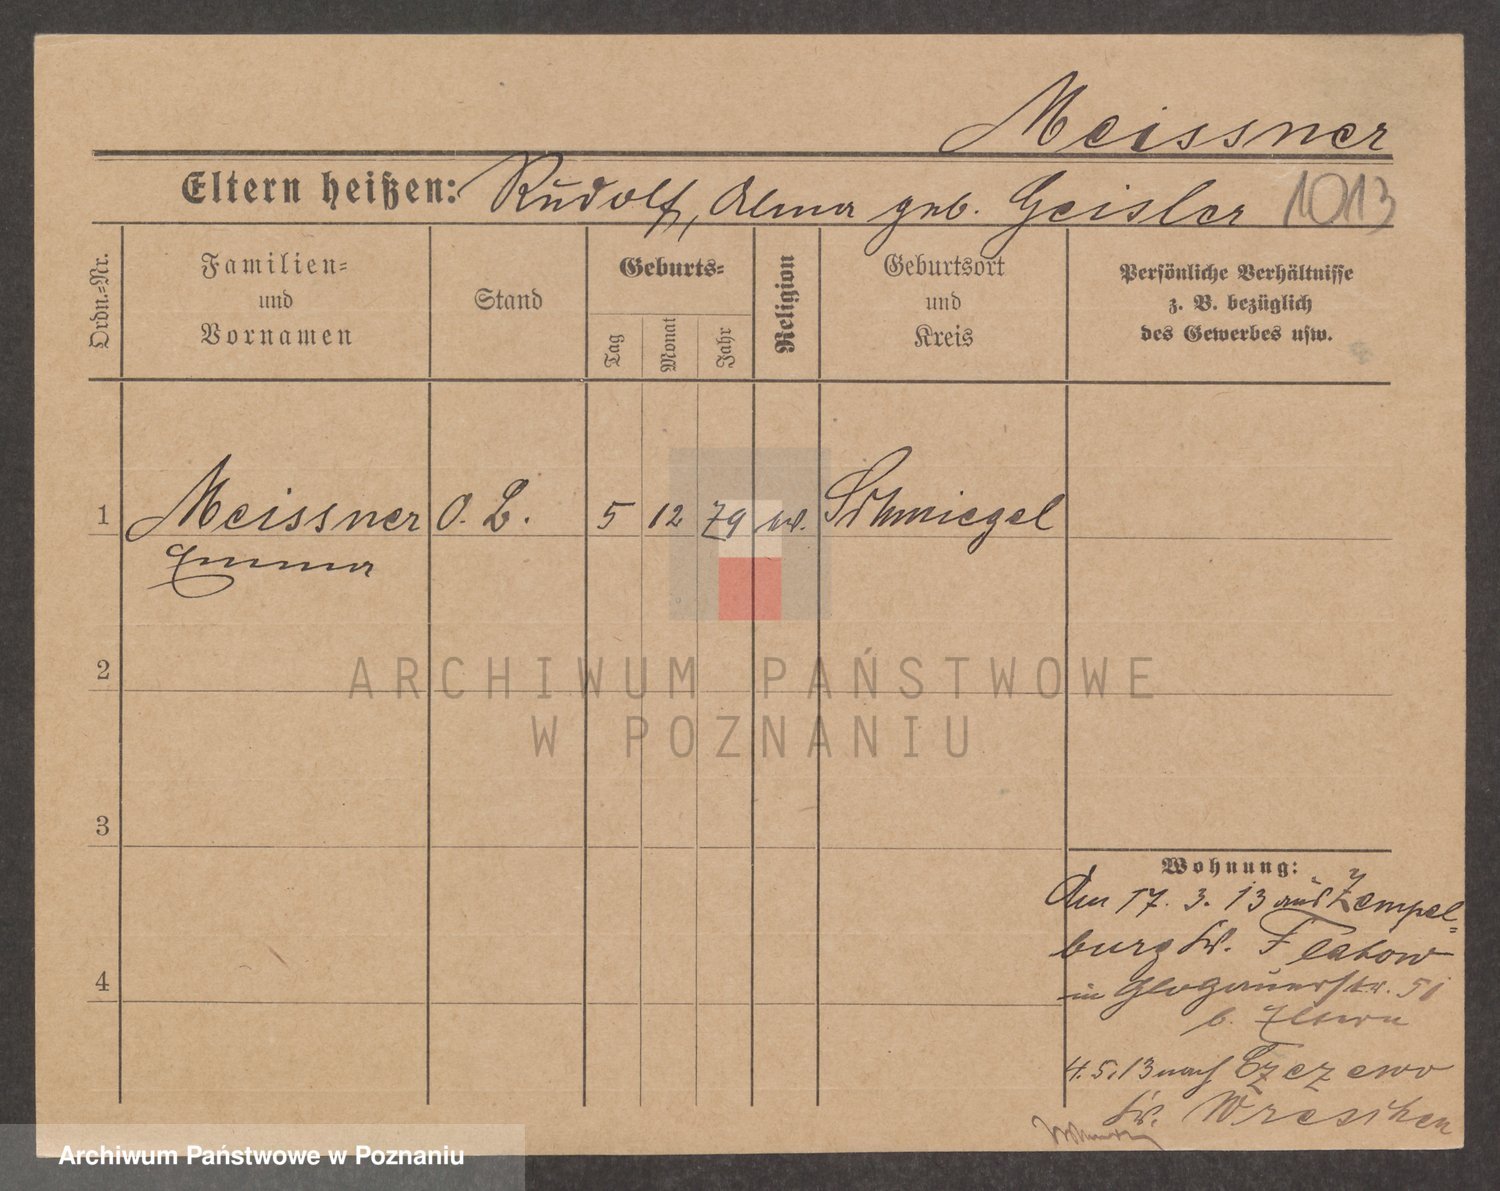 Meissner
Eltern heißen: Rudolf, Alma geb. Geisler 1013
Ordn.-Nr.
Familien-
und
Vornamen
Stand
Geburts-
Tag
Monat
Jahr
Religion
Geburtsort
und
Kreis
Persönliche Verhältnisse
z. B. bezüglich
des Gewerbes usw.
1 Meissner O. B. 5 12 79 ev. Schmiegel
Emma
2
ARCHIWUM PAŃSTWOWE
W POZNANIU
3
4
Wohnung:
Am 17. 3. 13 aus Zempel-
burg Kr. Flatow
in Glogauerstr. 51
b. Eltern
4. 5. 13 nach
Kr. Wreschen
Archiwum Państwowe w Poznaniu